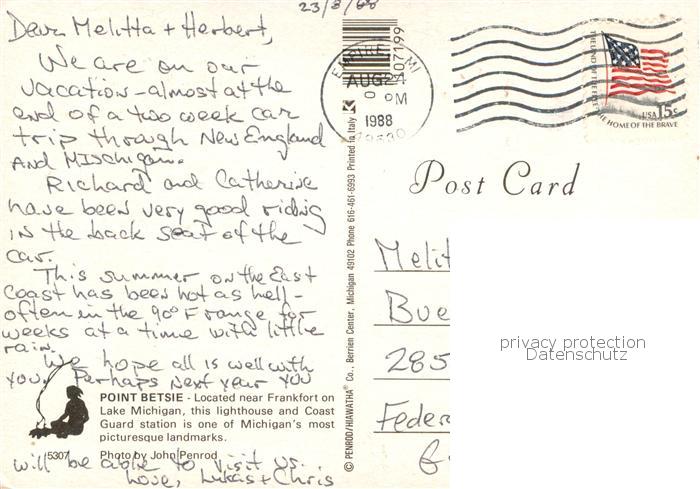 23/8/88
Dear Melitta + Herbert,
We are on our
vacation - almost at the
end of a two week car
trip through New England
AND MISchigan.
Richard and Catherine
have been very good riding
in the back seat of the
car.
This summer on the East
Coast has been hot as hell -
often in the 90° F range for
weeks at a time with little
rain.
We hope all is well with
you. Perhaps next year you
will be able to visit us.
Love, Lukas + Chris
POINT BETSIE - Located near Frankfort on
Lake Michigan, this lighthouse and Coast
Guard station is one of Michigan's most
picturesque landmarks.
5307
Photo by John Penrod
© PENROD/HIAWATHA® Co., Berrien Center, Michigan 49102 Phone 616-461-6993 Printed in Italy
07199
EMPIRE MI
AUG 24
PM
1988
THE LAND OF THE FREE
THE HOME OF THE BRAVE
USA 15c
Post Card
Melit
Bue
285
Feder
privacy protection
Datenschutz